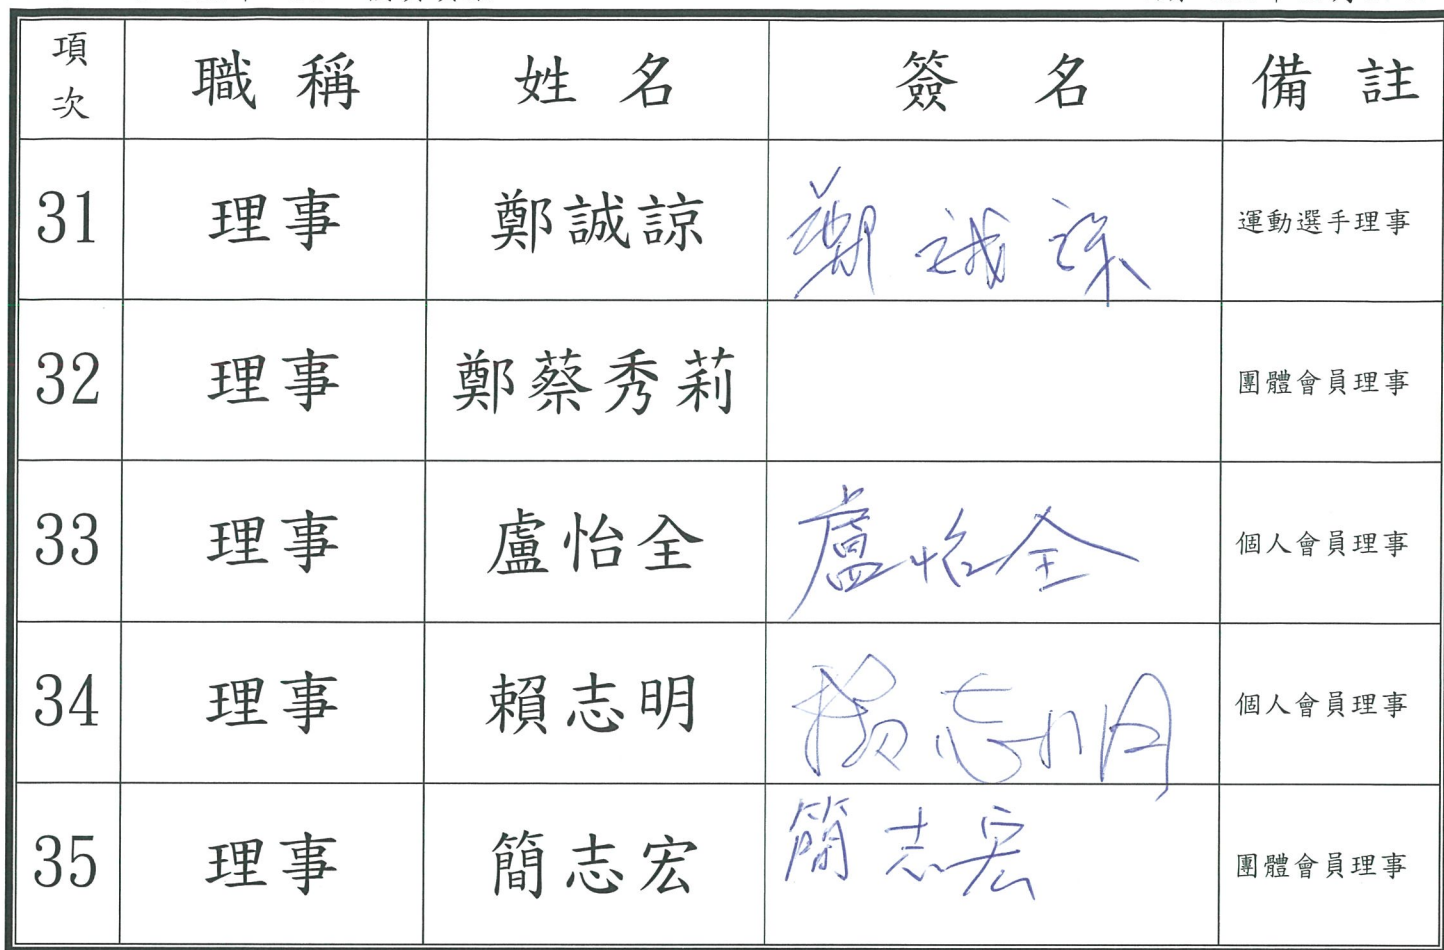 項次 職稱 姓名 簽名 備註
31 理事 鄭誠諒 鄭誠諒 運動選手理事
32 理事 鄭蔡秀莉 團體會員理事
33 理事 盧怡全 盧怡全 個人會員理事
34 理事 賴志明 賴志明 個人會員理事
35 理事 簡志宏 簡志宏 團體會員理事